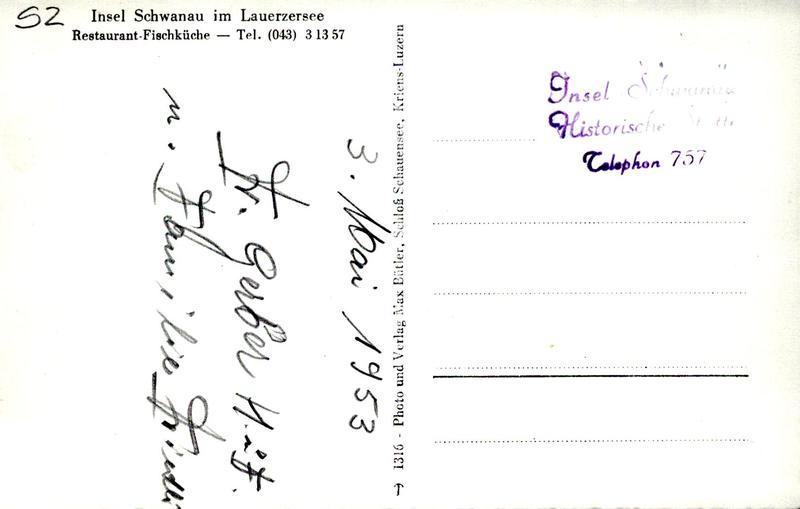 SZ
Insel Schwanau im Lauerzersee
Restaurant-Fischküche — Tel. (043) 3 13 57
3. Mai 1953
Gerber
u. Familie
1316 - Photo und Verlag Max Bütler, Schloß Schauensee, Kriens-Luzern
Insel Schwanau
Historische
Telephon 757